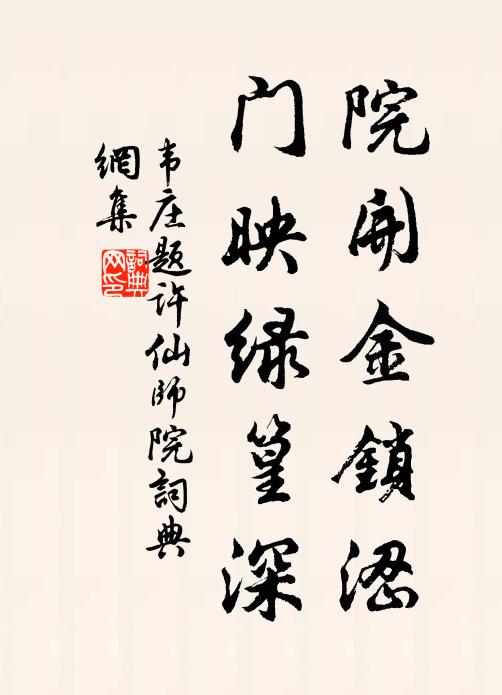 院開金鎖澀
门映绿篁深
韦庄题许仙師院詞典
網集
詞典
网印